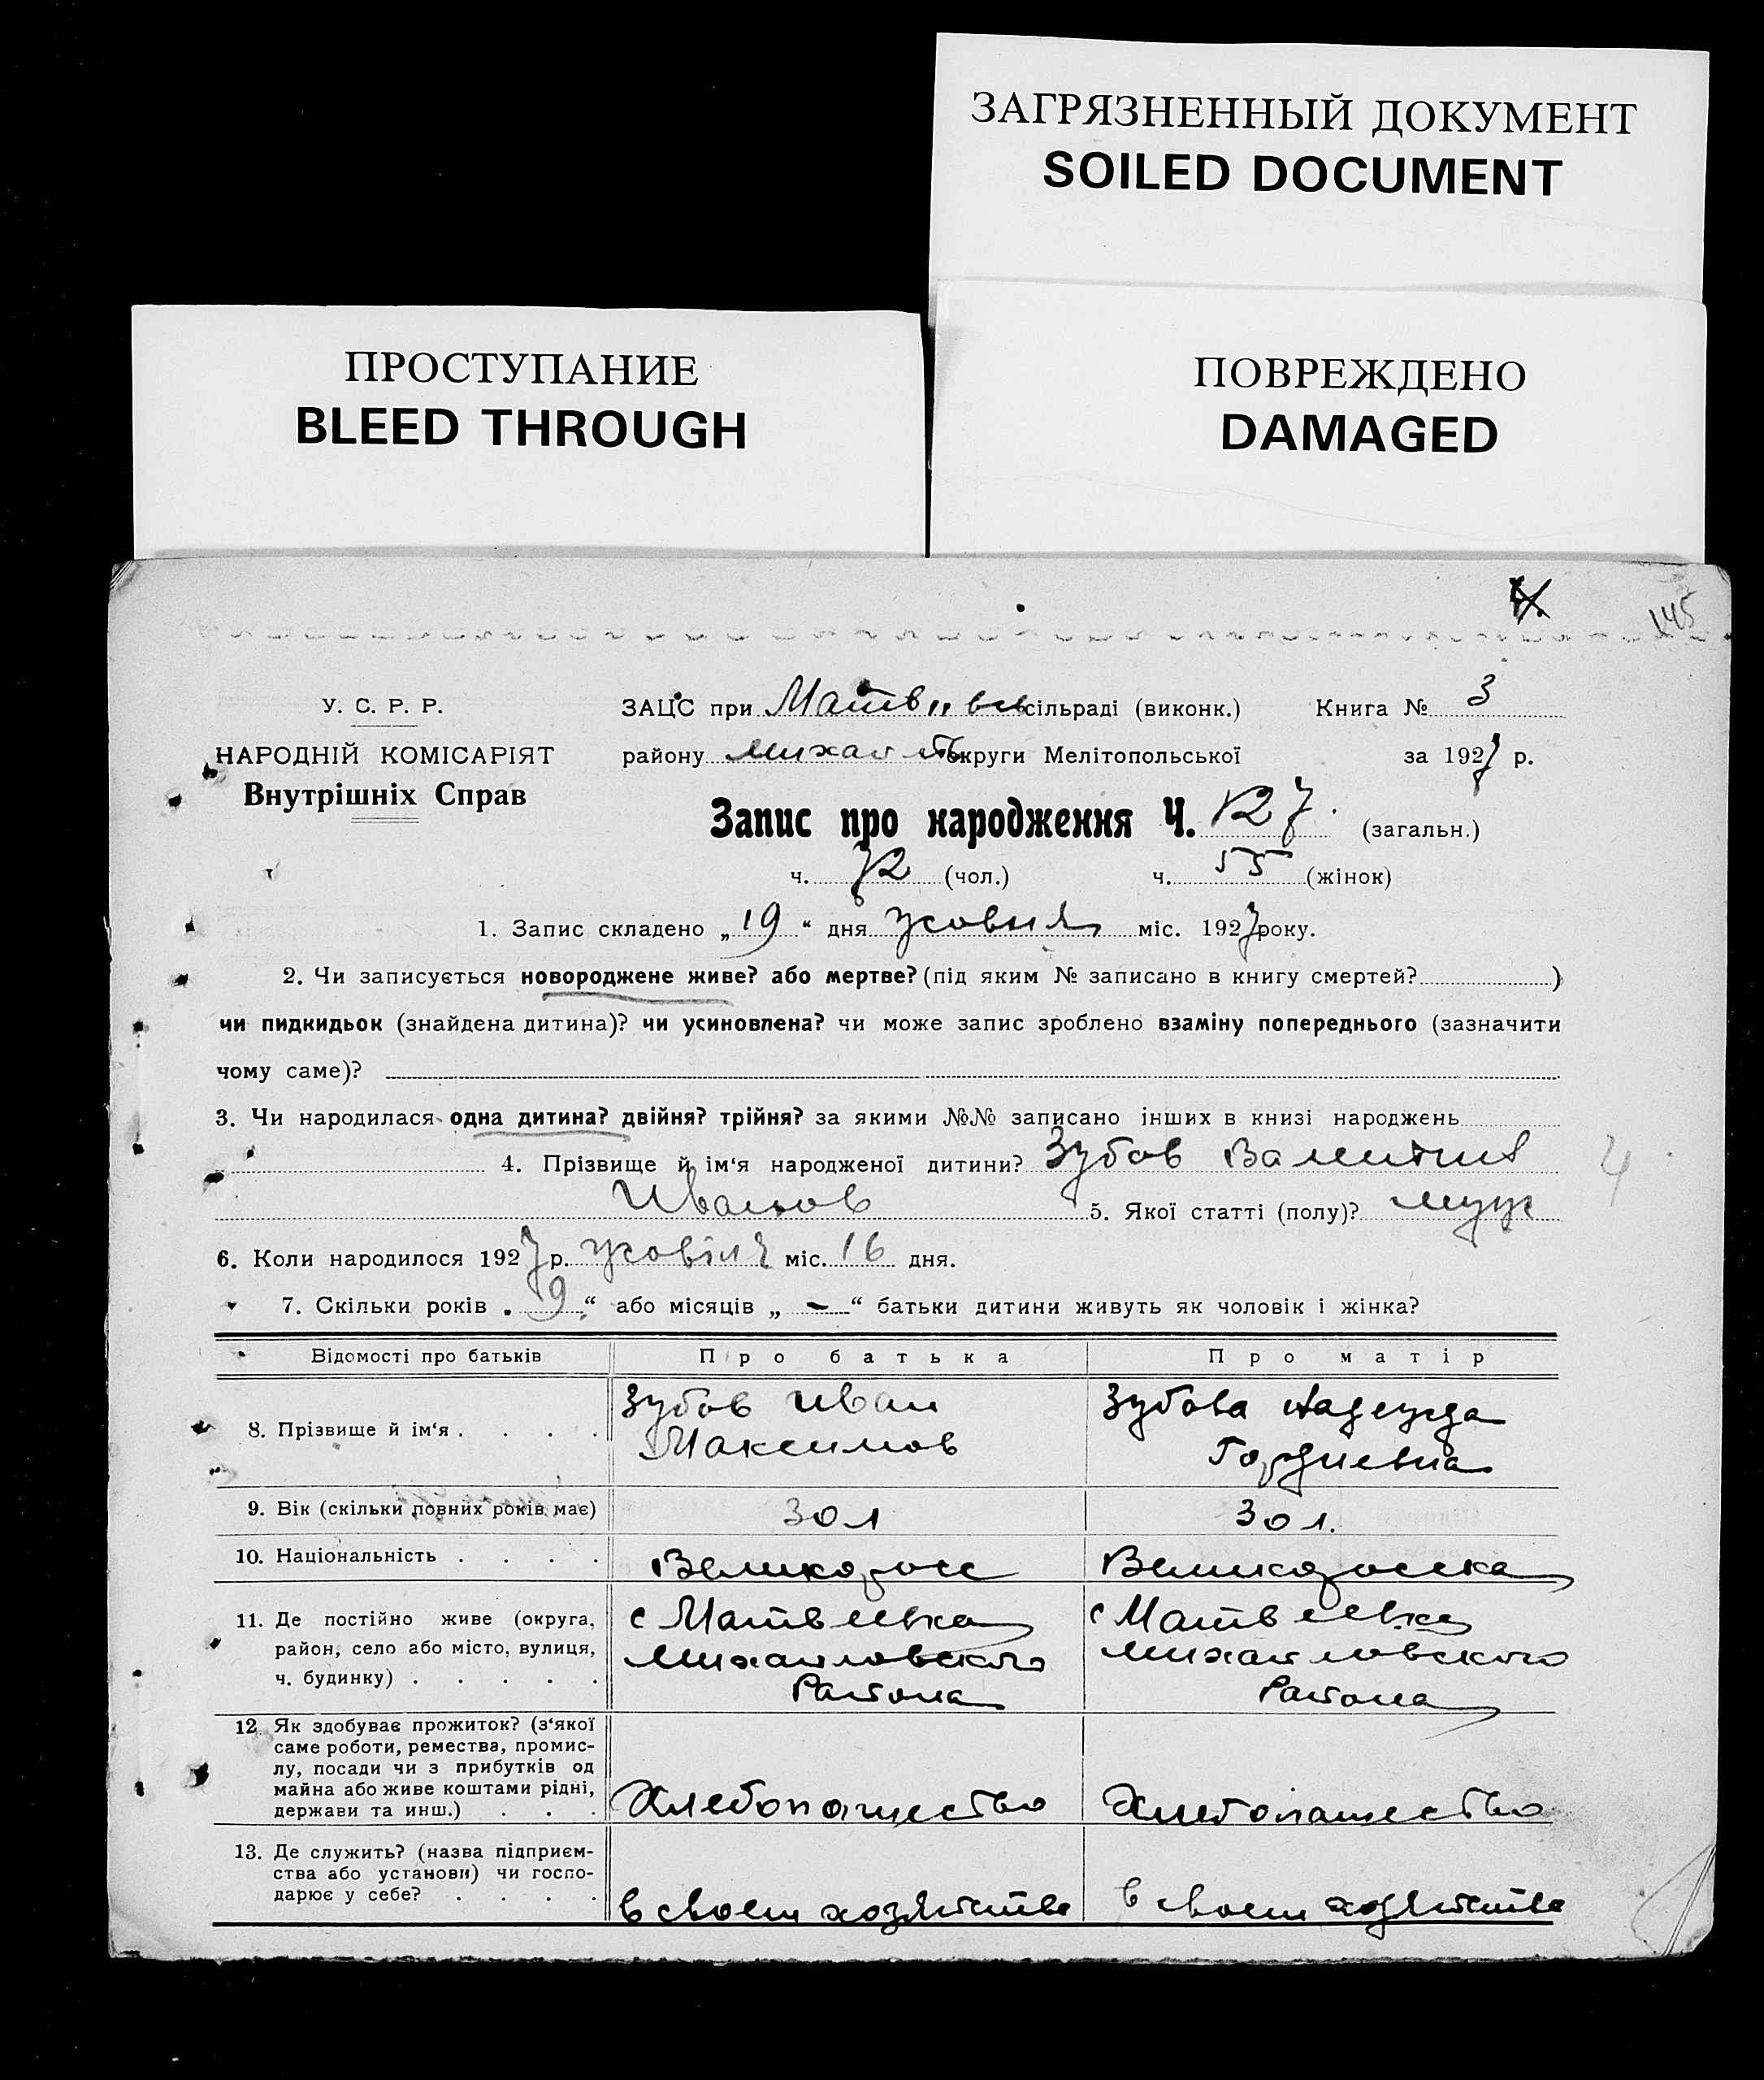 ЗАГРЯЗНЕННЫЙ ДОКУМЕНТ
SOILED DOCUMENT
ПРОСТУПАНИЕ
BLEED THROUGH
ПОВРЕЖДЕНО
DAMAGED
145
У. С. Р. Р.
НАРОДНІЙ КОМІСАРІЯТ
Внутрішніх Справ
ЗАЦС при Матвіївсь сільраді (виконк.) Книга № 3
району Михайл округи Мелітопольської за 1927 р.
Запис про народження Ч. 127. (загальн.)
ч. 72 (чол.) ч. 55 (жінок)
1. Запис складено „19“ дня жовтня міс. 1927 року.
2. Чи записується новороджене живе? або мертве? (під яким № записано в книгу смертей? )
чи пидкидьок (знайдена дитина)? чи усиновлена? чи може запис зроблено взаміну попереднього (зазначити
чому саме)?
3. Чи народилася одна дитина? двійня? трійня? за якими №№ записано інших в книзі народжень
4. Прізвище й ім‘я народженої дитини? Зубов Валентин
4
Иванов 5. Якої статті (полу)? муж
6. Коли народилося 1927 р. жовтня міс. 16 дня.
7. Скільки років „9“ або місяців „ - “ батьки дитини живуть як чоловік і жінка?
Відомості про батьків Про батька Про матір
8. Прізвище й ім‘я . . . .
Зубов Иван
Максимов
Зубова Надежда
Гордиевна
9. Вік (скільки повних років має) 30 л 30 л.
10. Національність . . . . Великоросс Великоросска
11. Де постійно живе (округа,
район, село або місто, вулиця,
ч. будинку) . . . . .
с Матвеевка
Михайловского
Района
с Матвеевка
Михайловского
Района
12. Як здобуває прожиток? (з‘якої
саме роботи, ремества, промис-
лу, посади чи з прибутків од
майна або живе коштами рідні,
держави та инш.) . . .
Хлебопашество
Хлебопашество
13. Де служить? (назва підприєм-
ства або установи) чи госпо-
дарює у себе? . . . .
в своем хозяйстве
в своем хозяйстве